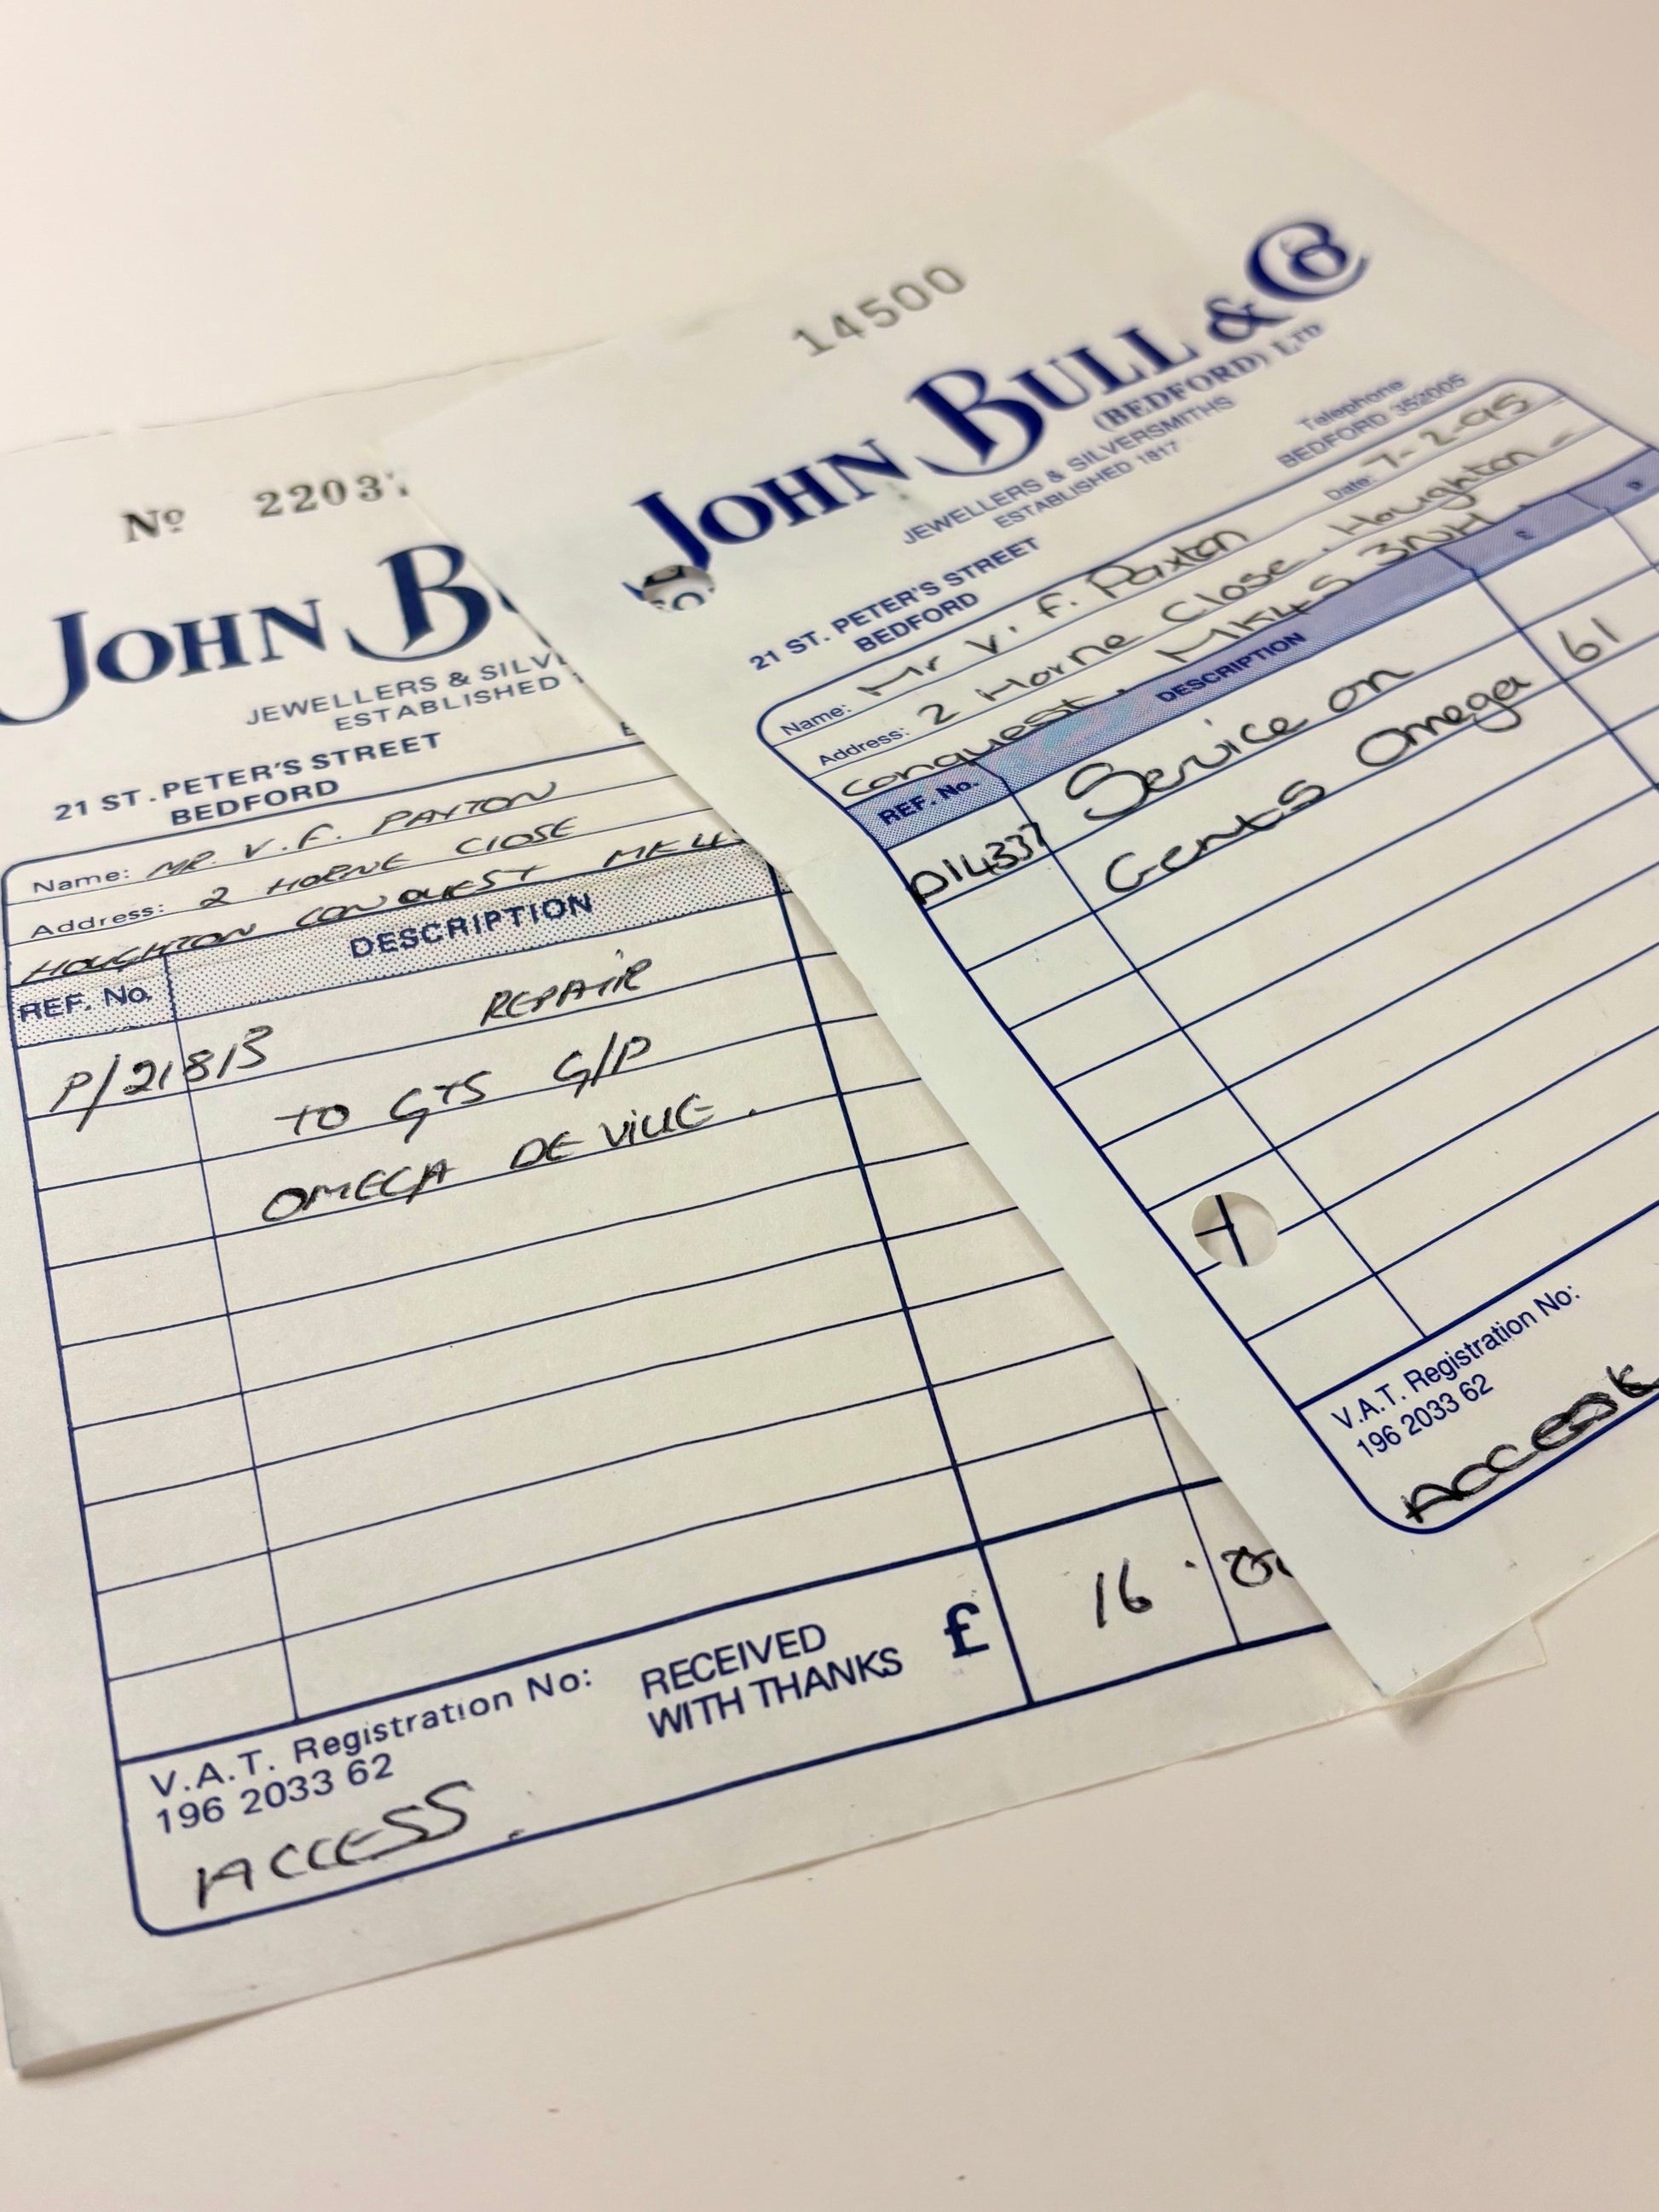 No 22037
JOHN B
JEWELLERS & SILV
ESTABLISHED
21 ST. PETER'S STREET
BEDFORD
Name: MR V.F. PAXTON
Address: 2 HORNE CLOSE
HOUGHTON CONQUEST MK4
REF. No. DESCRIPTION
P/21813 REPAIR
TO GTS G/P
OMEGA DE VILLE.
V.A.T. Registration No: RECEIVED £ 16.
196 2033 62 WITH THANKS
ACCESS.
14500
JOHN BULL & Co
(BEDFORD) LTD
JEWELLERS & SILVERSMITHS
ESTABLISHED 1817
21 ST. PETER'S STREET Telephone
BEDFORD BEDFORD 352005
Name: Mr V. F. Paxton Date: 7-2-95
Address: 2 Horne Close, Houghton -
Conquest, MK45 3NH.
REF. No. DESCRIPTION £ p
P14337 Service on
Gents Omega 61
V.A.T. Registration No:
196 2033 62